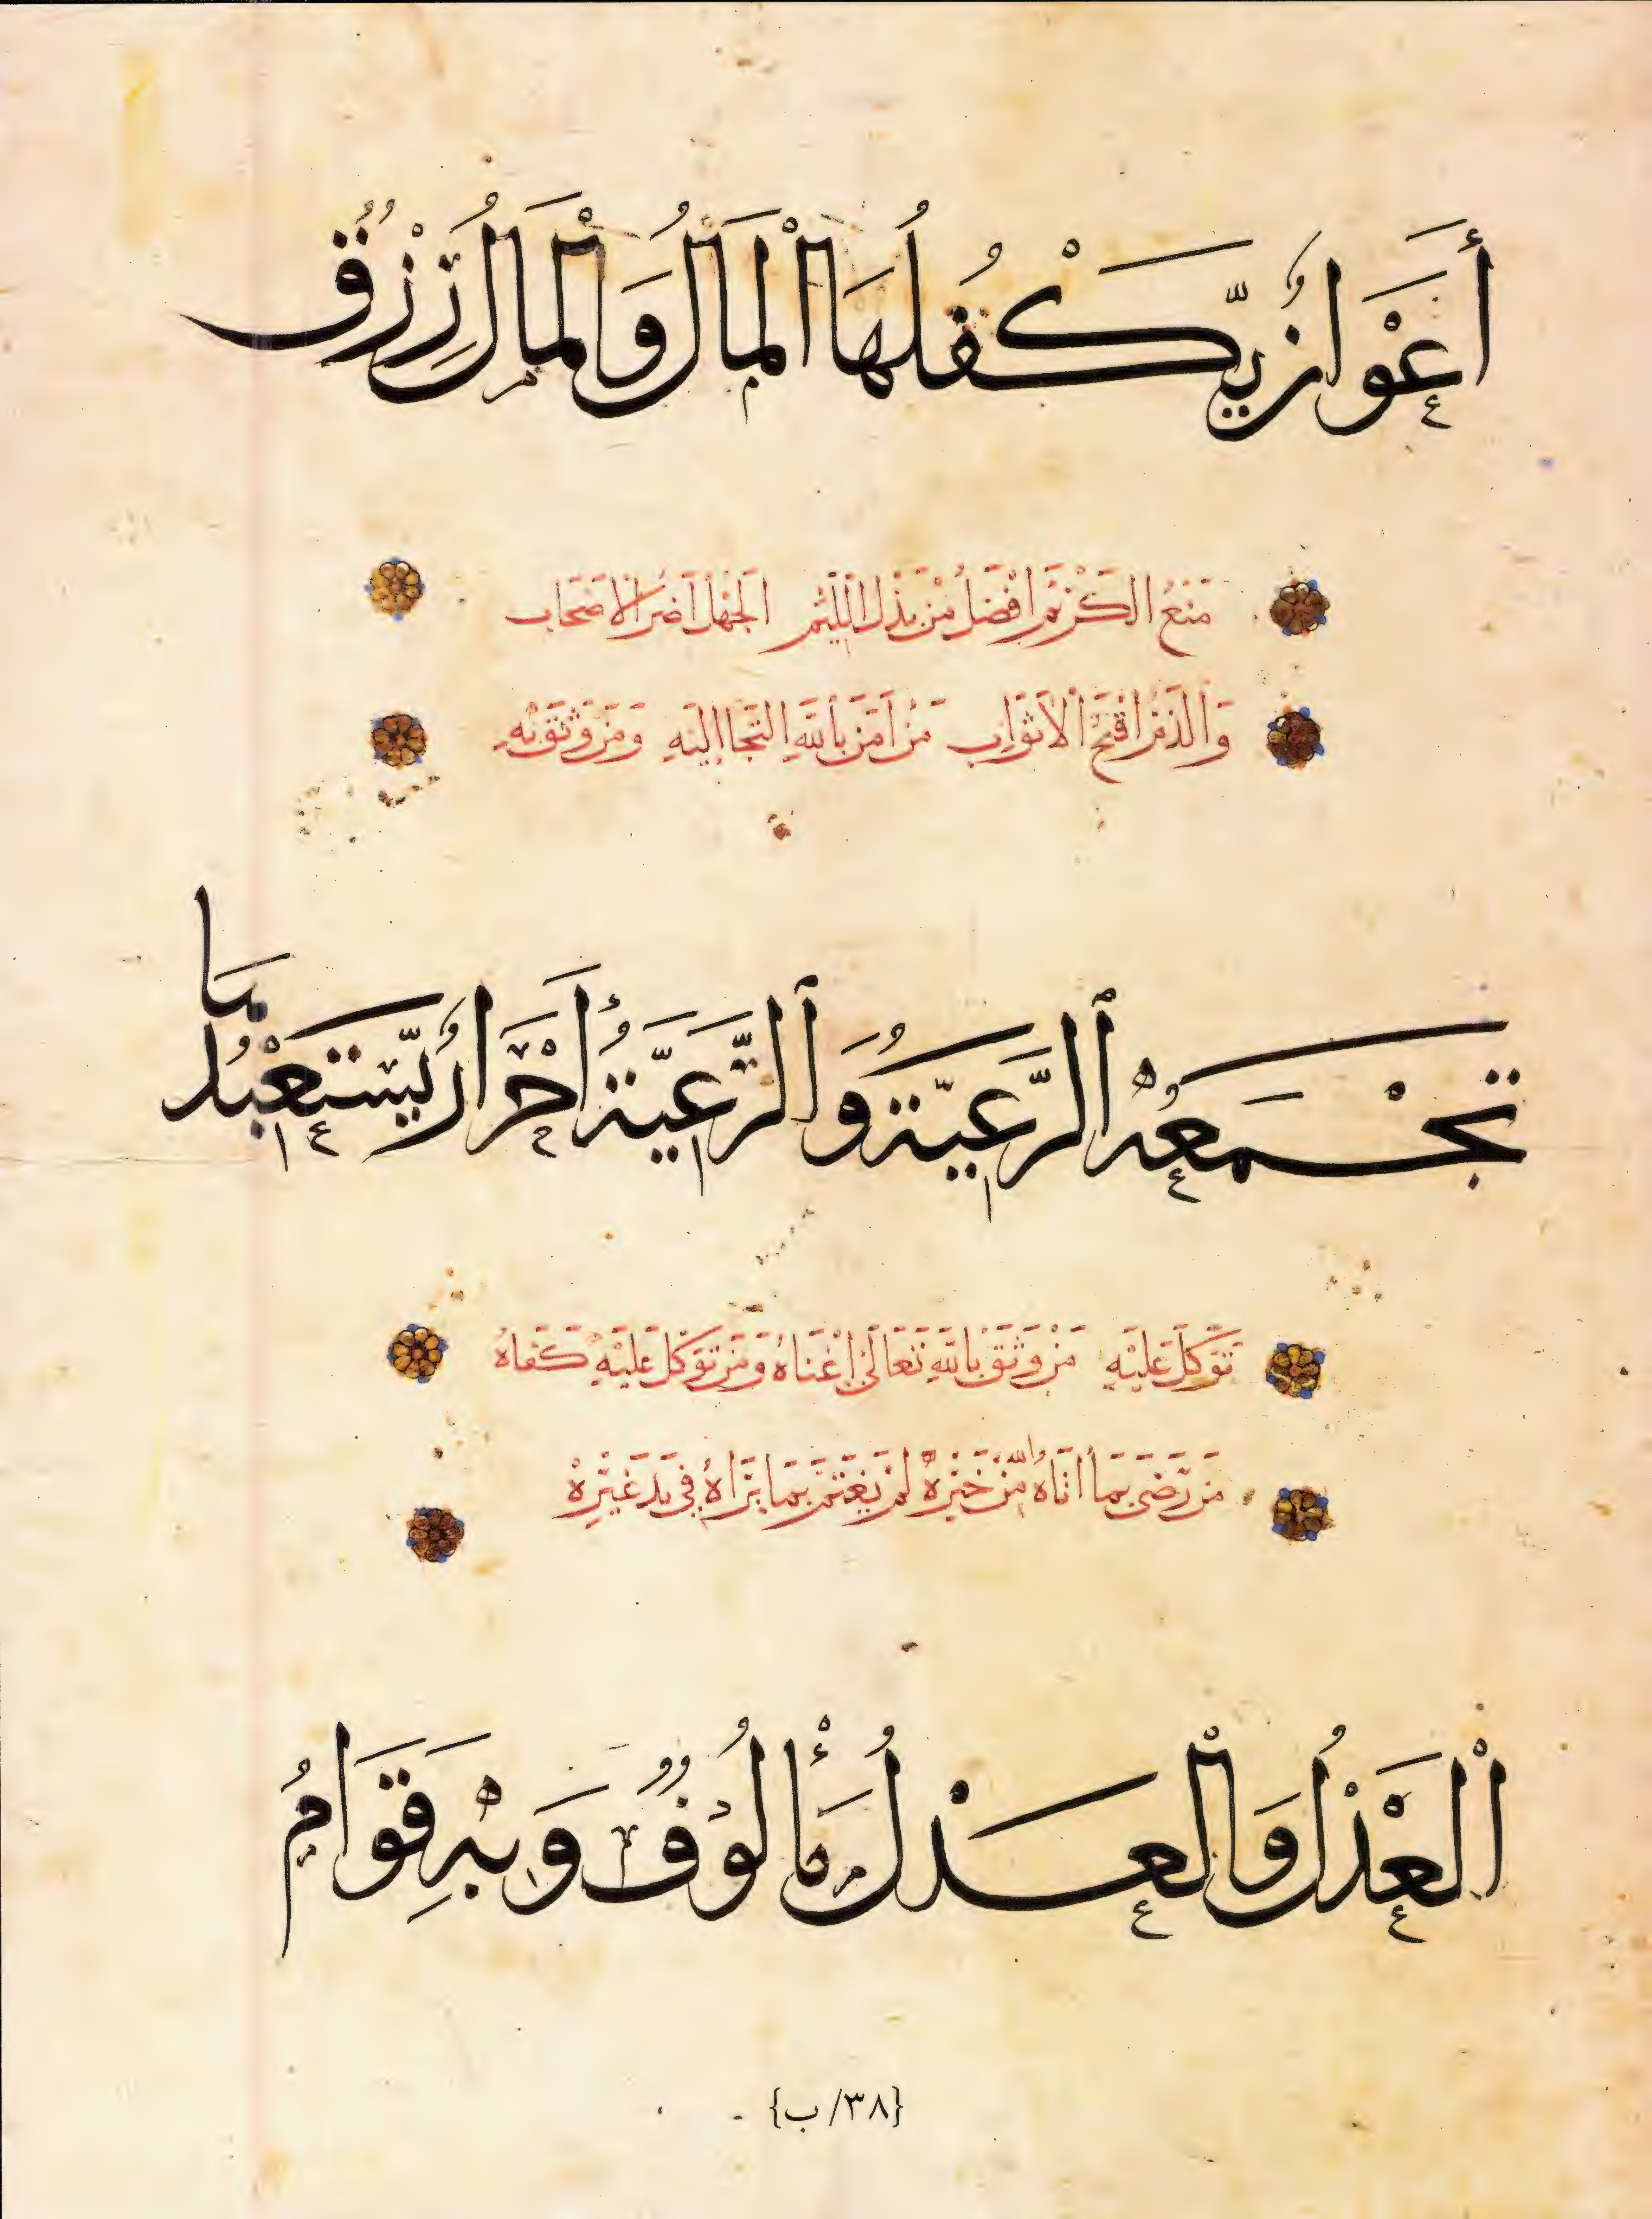 أَعْوَانٌ يَّكْفُلُهَا الْمَالُ وَالْمَالُ رِزْقٌ
مَنْعُ الكَرْيَمِ اَفْضَلُ مِنْ بَذْلِ اللَّئِيْمِ الجَهْلُ اَضَرُّ الاَصْحَابِ
وَالذَّمُّ اَقْبَحُ الْاَثْوَابِ مَنْ اَمَنَ بِاللّٰهِ الْتَجَا اِلَيْهِ وَمَنْ وَثِقَ بِهِ
تَجْمَعُهُ ٱلرَّعِيَّةُ وَٱلرَّعِيَّةُ أَحْرَارٌ يَّسْتَعْبِدُهَا
تَوَكَّلَ عَلَيْهِ مَنْ وَثِقَ بِاللّٰهِ تَعَالَىٰ اَغْنَاهُ وَمَنْ تَوَكَّلَ عَلَيْهِ كَفَاهُ
مَنْ رَضَىَ بِمَا اَتَاهُ اللّٰهُ مِنْ خَيْرِهْ لَمْ يَغْتَمَّ بِمَا يَرَاهُ فِى يَدِ غَيْرِهْ
الْعَدْلُ وَالْعَدْلُ مَأْلُوْفٌ وَبِهِ قَوَامُ
{٣٨/ ب}